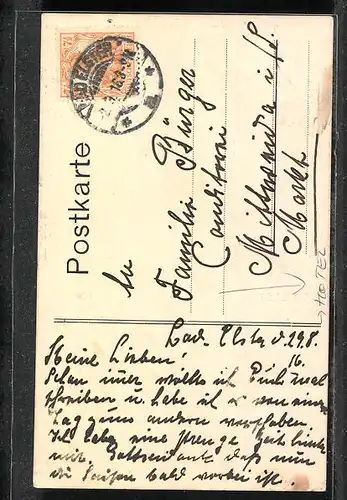 BAD ELSTER
Postkarte
An
Familie Bürger
Conditorei
Mittweida i. S.
Markt
HOTEL
Bad-Elster d. 29.8.
16.
Meine Lieben!
Schon immer wollte ich Euch mal
schreiben u. habe ich es von einem
Tag zum andern verschoben.
Ich habe eine strenge Zeit hinter
mir. Gottseidank daß nun
die Saison bald vorbei ist.